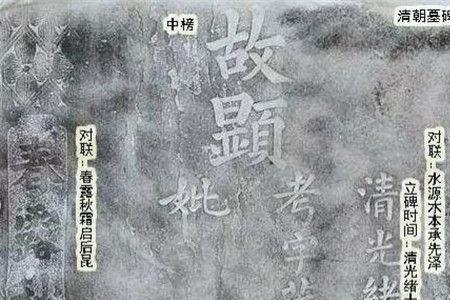 中榜
清朝墓碑
故顯
考字
妣
清光緒
春露
对联：春露秋霜启后昆
对联：水源木本承先泽
立碑时间：清光绪